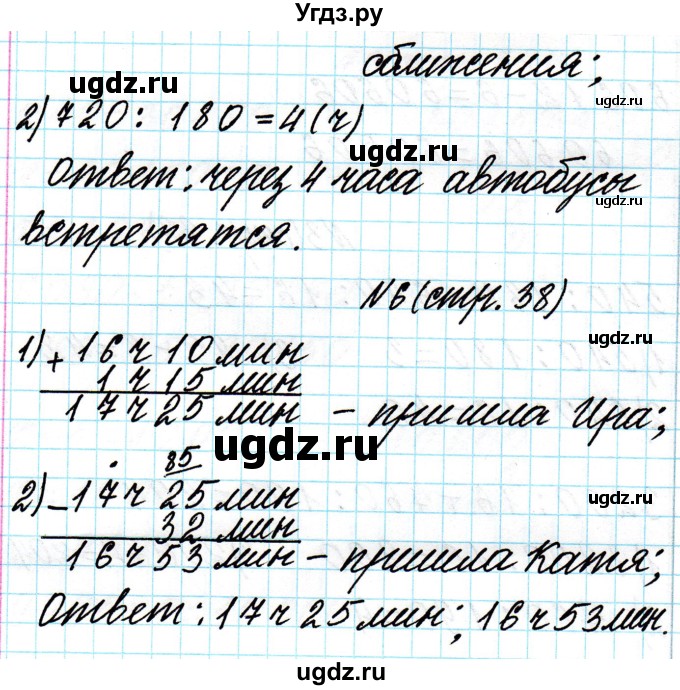 Угдз.ру
сближения;
2) 720 : 180 = 4 (ч)
Ответ: через 4 часа автобусы
встретятся.
№6 (стр. 38)
1) + 16 ч 10 мин
1 ч 15 мин
17 ч 25 мин – пришла Ира;
85
2) – 17 ч 25 мин
32 мин
16 ч 53 мин – пришла Катя;
Ответ: 17 ч 25 мин; 16 ч 53 мин.
ugdz.ru
ugdz.ru
ugdz.ru
ugdz.ru
ugdz.ru
ugdz.ru
ugdz.ru
ugdz.ru
ugdz.ru
ugdz.ru